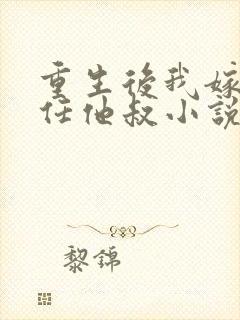 重生後我嫁
任他叔小說
黎錦